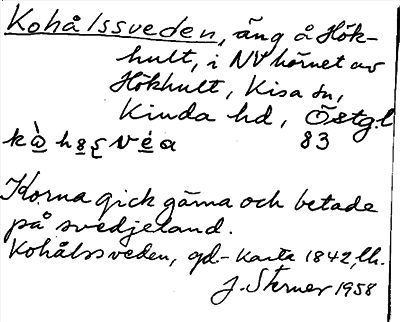 Kohålssveden, äng å Hök-
hult, i NV hörnet av
Hökhult, Kisa sn,
Kinda hd, Östg.l
83
Korna gick gärna och betade
på svedjeland.
Kohålssveden, gd.- karta 1842, lh.
J. Sterner 1958